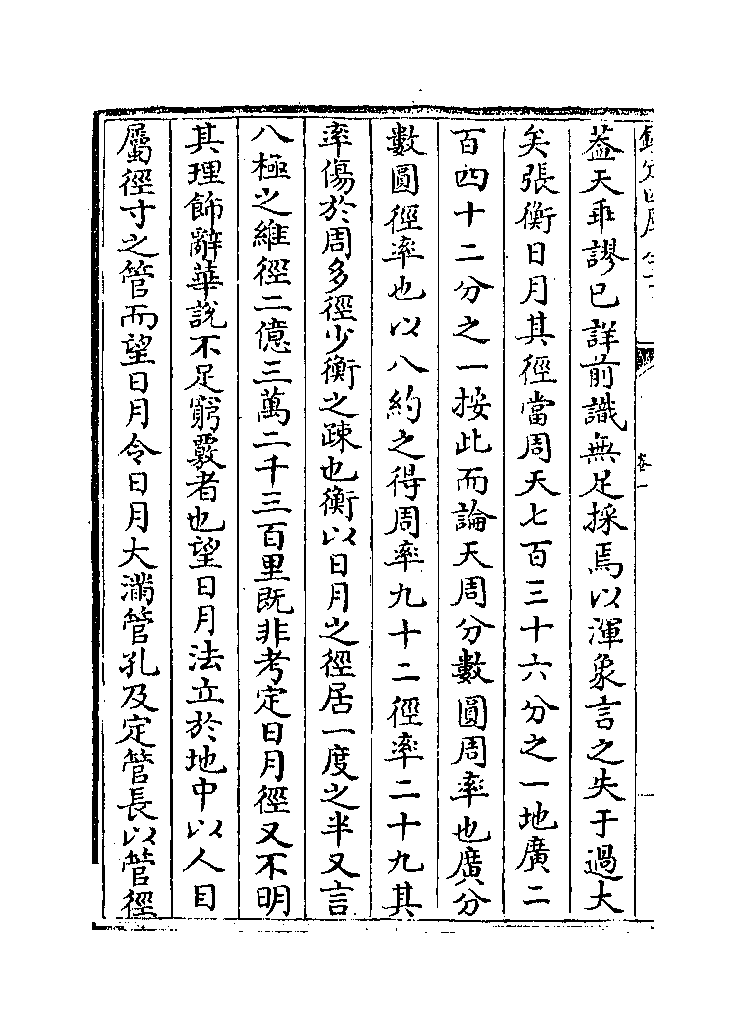 葢天乖謬已詳前識無足採焉以渾象言之失于過大
矣張衡日月其徑當周天七百三十六分之一地廣二
百四十二分之一按此而論天周分數圓周率也廣分
數圓徑率也以八約之得周率九十二徑率二十九其
率傷於周多徑少衡之疎也衡以日月之徑居一度之半又言
八極之維徑二億三萬二千三百里既非考定日月徑又不明
其理飾辭華說不足窮覈者也望日月法立於地中以人目
屬徑寸之管而望日月令日月大滿管孔及定管長以管徑